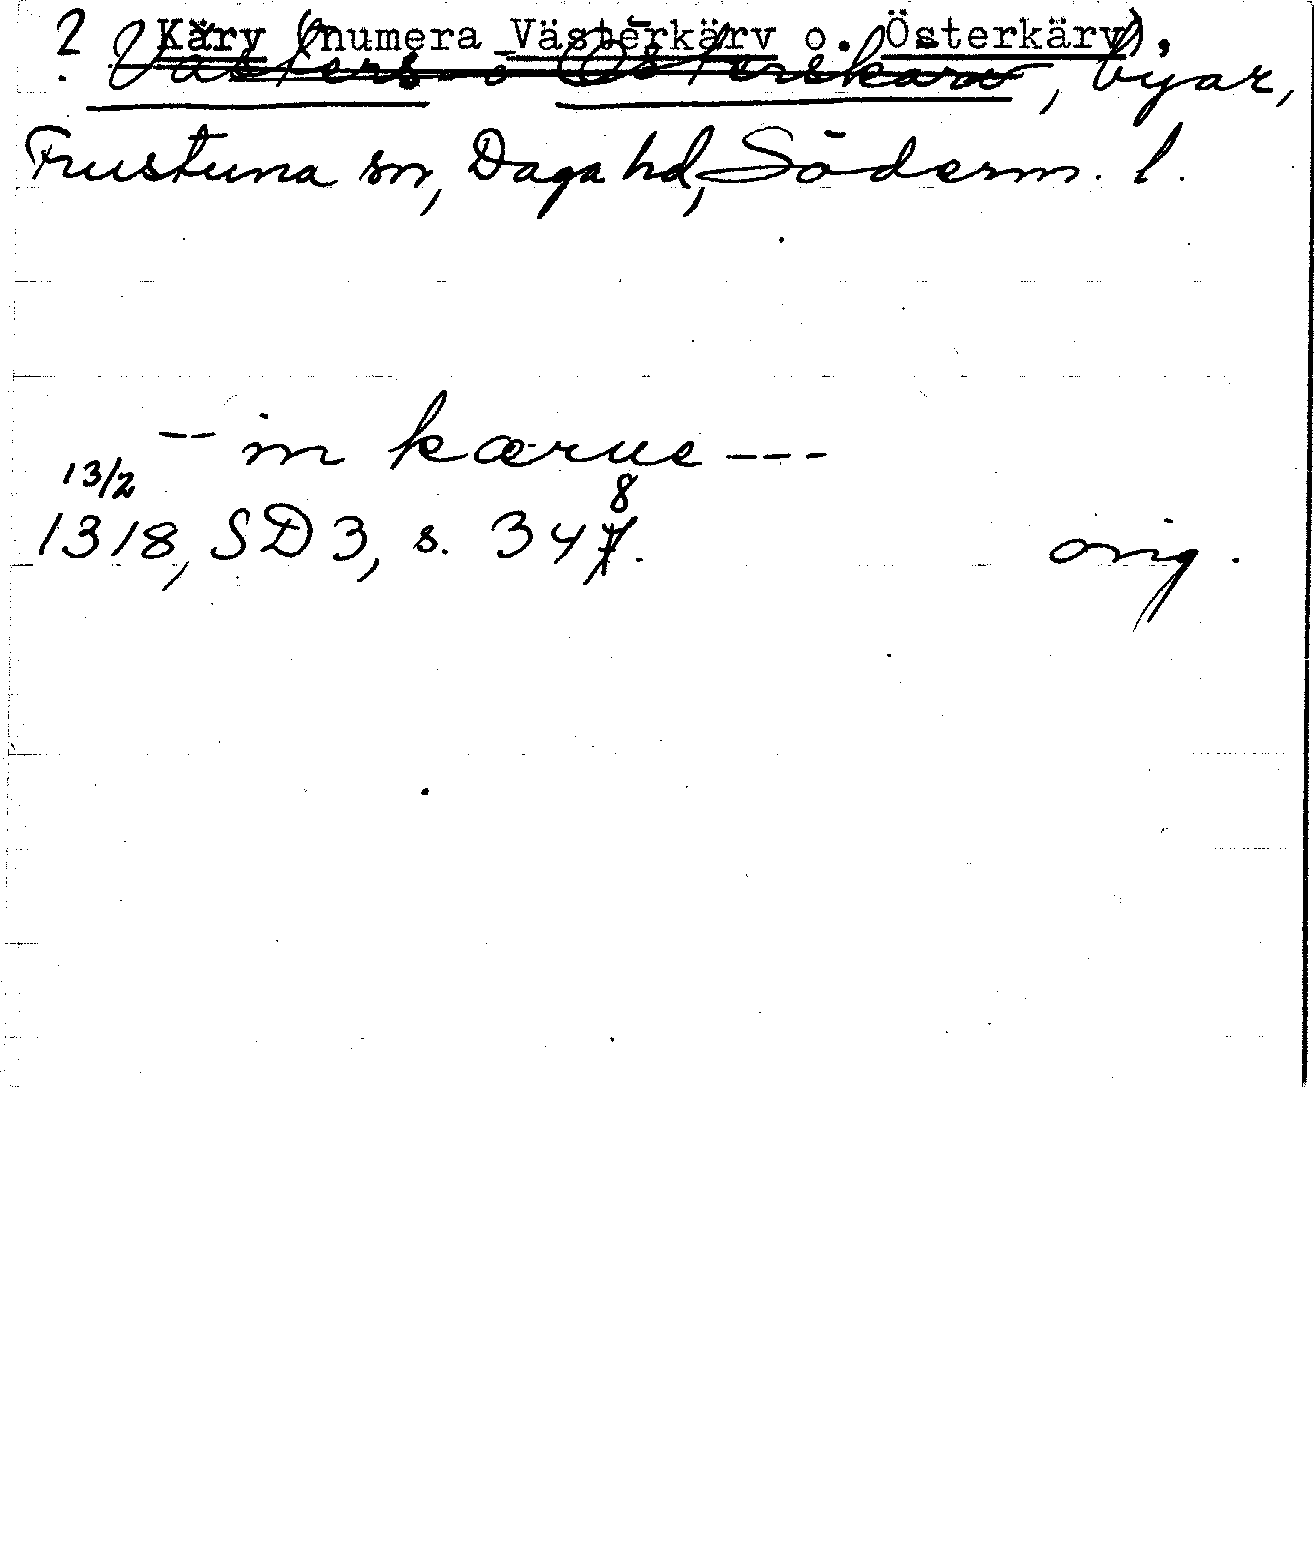 ? Kärv (numera Västerkärv o. Österkärv),
Västers- o Österskärv, byar,
Frustuna sn, Daga hd, Söderm. l.
-- in kærue ---
13/2
1318, SD 3, s. 348. orig.